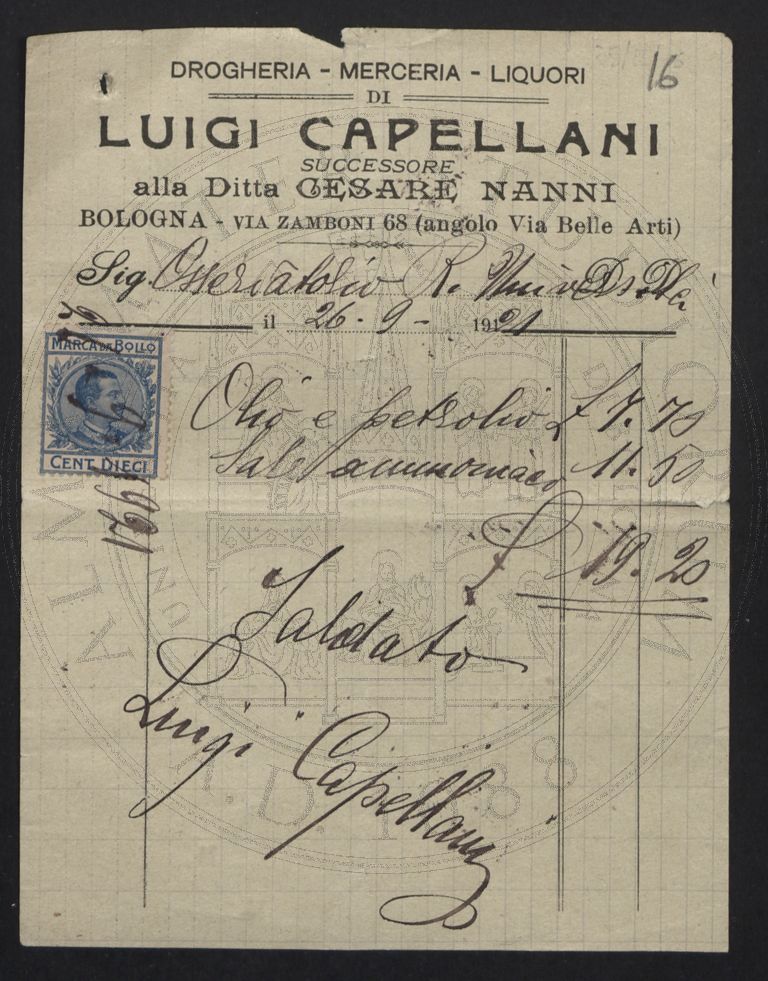 16
DROGHERIA - MERCERIA - LIQUORI
DI
LUIGI CAPELLANI
SUCCESSORE
alla Ditta CESARE NANNI
BOLOGNA - VIA ZAMBONI 68 (angolo Via Belle Arti)
Sig. Osservatolio R.
il 26 - 9 - 1921
MARCA DA BOLLO
CENT. DIECI
1921
Olio e petrolio £ 7. 70
Sale ammoniaco 11. 50
£ 19. 20
Saldato
Luigi Capellani